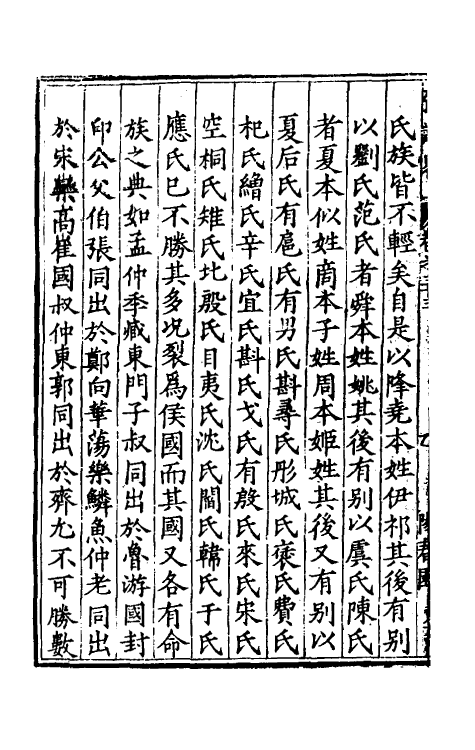 氏族皆不輕矣自是以降堯本姓伊祁其後有别
以劉氏范氏者舜本姓姚其後有别以虞氏陳氏
者夏本似姓商本子姓周本姬姓其後又有别以
夏后氏有扈氏有男氏斟尋氏彤城氏褒氏費氏
杞氏繒氏辛氏宜氏斟氏戈氏有殷氏來氏宋氏
空桐氏雉氏北殷氏目夷氏沈氏閻氏韓氏于氏
應氏已不勝其多况裂爲侯國而其國又各有命
族之典如孟仲季臧東門子叔同出於魯游國封
印公父伯張同出於鄭向華蕩樂鱗魚仲老同出
於宋欒高崔國叔仲東郭同出於齊尤不可勝數